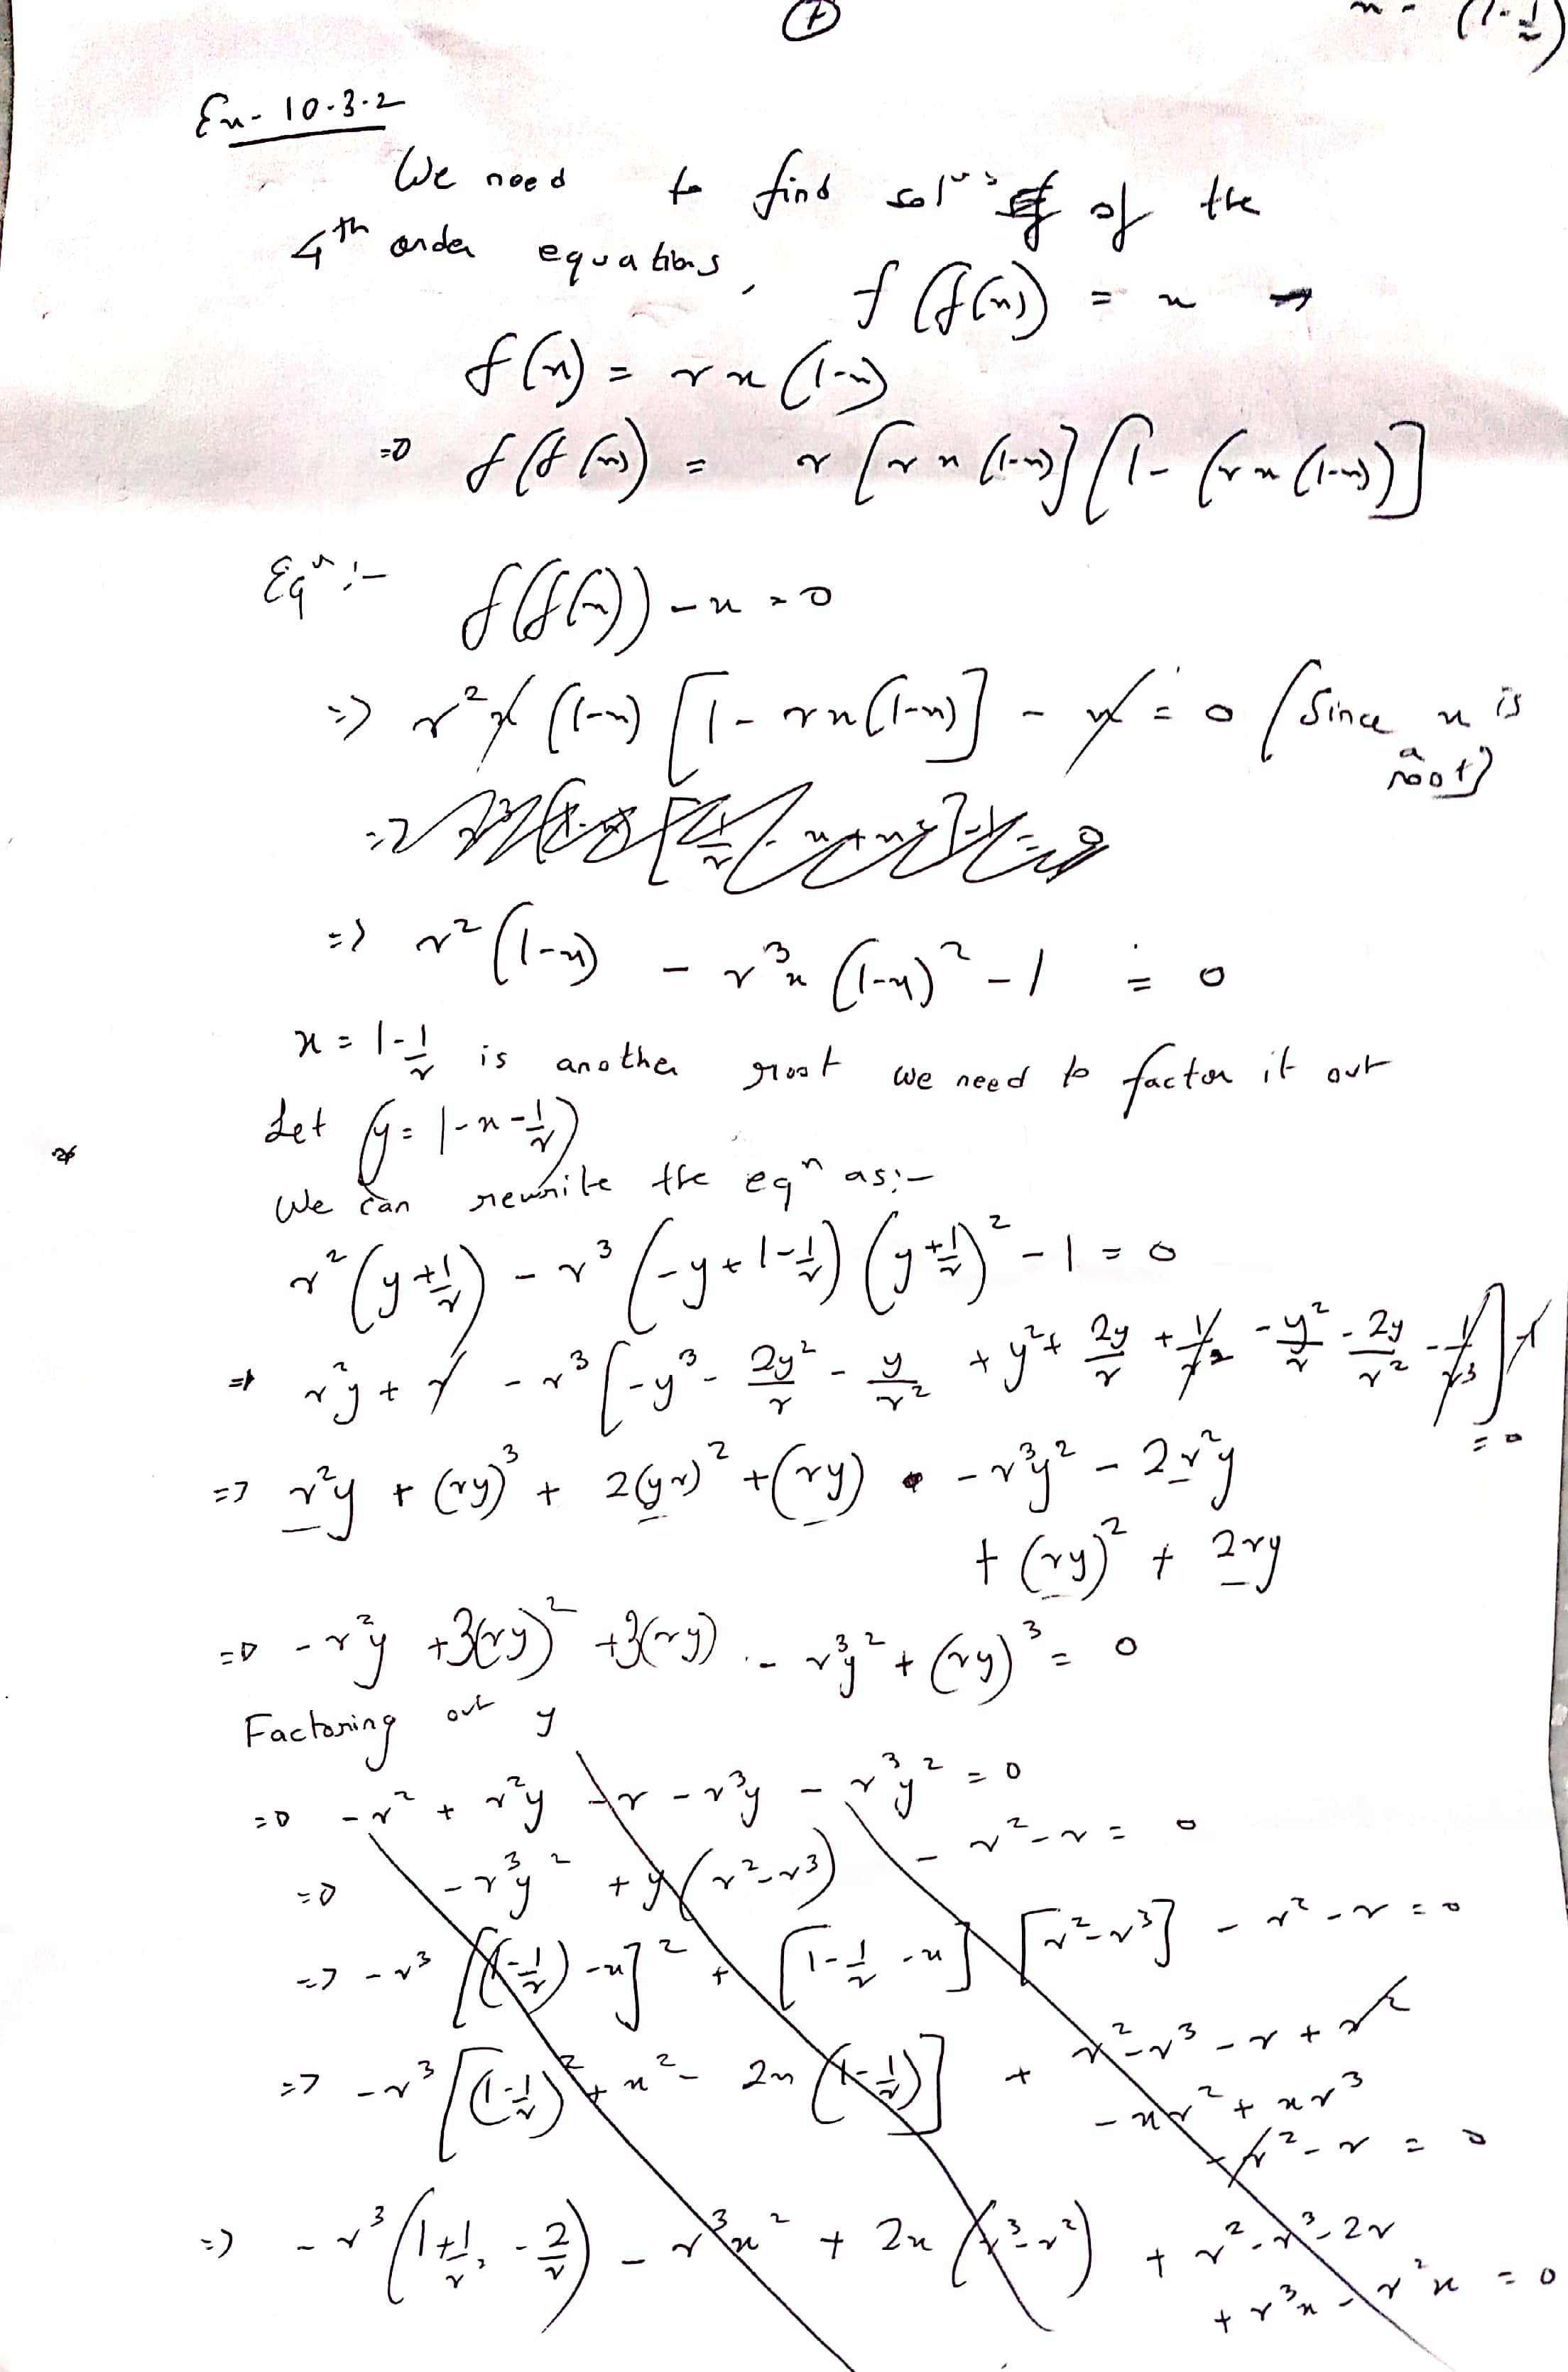 ①
x = (1-1/r)
Ex- 10.3.2
We need to find solⁿs of the
4th order equations, f(f(x)) = x →
f(x) = rx(1-x)
⇒ f(f(x)) = r[rx(1-x)][1-(rx(1-x))]
Eqⁿ:- f(f(x)) - x = 0
⇒ r²x(1-x)[1-rx(1-x)] - x = 0 (Since x is
a root)
⇒ r²(1-x) - r³x(1-x)² - 1 = 0
x = 1-1/r is another root we need to factor it out
Let (y = 1-x-1/r)
We can rewrite the eqⁿ as:-
r²(y+1/r) - r³(-y+1-1/r)(y+1/r)² - 1 = 0
⇒ r²y + r - r³[-y³ - 2y²/r - y/r² + y² + 2y/r + 1/r² - y²/r - 2y/r² - 1/r³] - 1
= 0
⇒ r²y + (ry)³ + 2(yr)² + (ry) - r³y² - 2r²y
+ (ry)² + 2ry
⇒ -r²y + 3(ry)² + 3(ry) - r³y² + (ry)³ = 0
Factoring out y
⇒ -r² + r²y - r - r³y - r³y² = 0
⇒ -r³y² + y(r²-r³) - r² - r = 0
⇒ -r³[(1-1/r)-x]² + [1-1/r-x][r²-r³] - r² - r = 0
⇒ -r³[(1-1/r)² + x² - 2x(1-1/r)] + r² - r³ - r + r²
- xr² + xr³
- r² - r = 0
⇒ -r³(1+1/r² - 2/r) - r³x² + 2x(r³-r²) + r² - r³ - 2r
+ r³x - r²x = 0